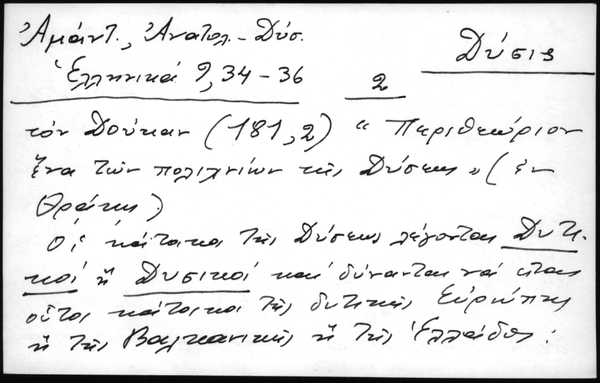 Ἀμάντ., Ἀνατολ. - Δύσ.
Δύσις
Ἑλληνικά 9, 34-36
2
τόν Δούκαν (181,2) “ Περιθεώριον
ἕνα τῶν πολιχνίων τῆς Δύσεως „ (ἐν
Θράκῃ)
Οἱ κάτοικοι τῆς Δύσεως λέγονται Δυτι-
κοί ἤ Δυσικοί καί δύνανται νά εἶναι
οὗτοι κάτοικοι τῆς δυτικῆς Εὐρώπης
ἤ τῆς Βαλκανικῆς ἤ τῆς Ἑλλάδος :